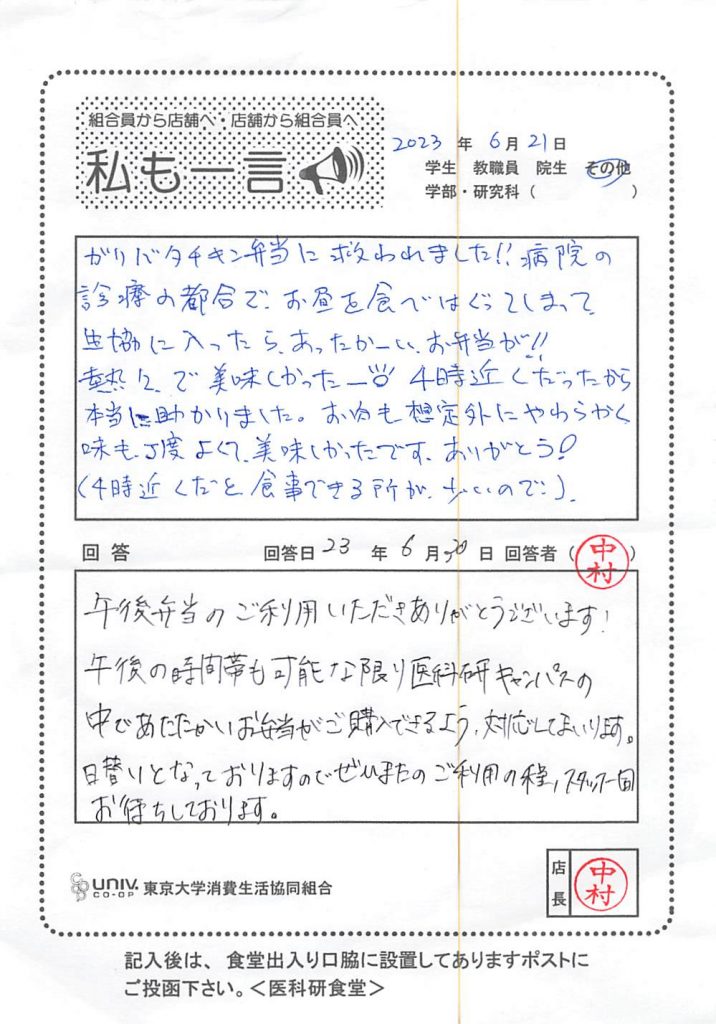 組合員から店舗へ・店舗から組合員へ
私も一言
2023 年 6月 21日
学生 教職員 院生 その他
学部・研究科（ ）
がリバタチキン弁当に救われました!! 病院の
診療の都合で、お昼を食べはぐってしまって
生協に入ったら、あったかーい、お弁当が!!
熱々で美味しかったー 4時近くだったから
本当に助かりました。お肉も想定外にやわらかく
味も丁度よくて、美味しかったです、ありがとう!
(4時近くだと食事できる所が、少いので:).
回答 回答日 23 年 6 月 30 日 回答者（中村）
午後弁当のご利用いただきありがとうございます!
午後の時間帯も可能な限り医科研キャンパスの
中であたたかいお弁当がご購入できるよう、対応してまいります。
日替りとなっておりますのでぜひまたのご利用の程、スタッフ一同
お待ちしております。
UNIV. CO-OP 東京大学消費生活協同組合
店長 中村
記入後は、食堂出入り口脇に設置してありますポストに
ご投函下さい。＜医科研食堂＞